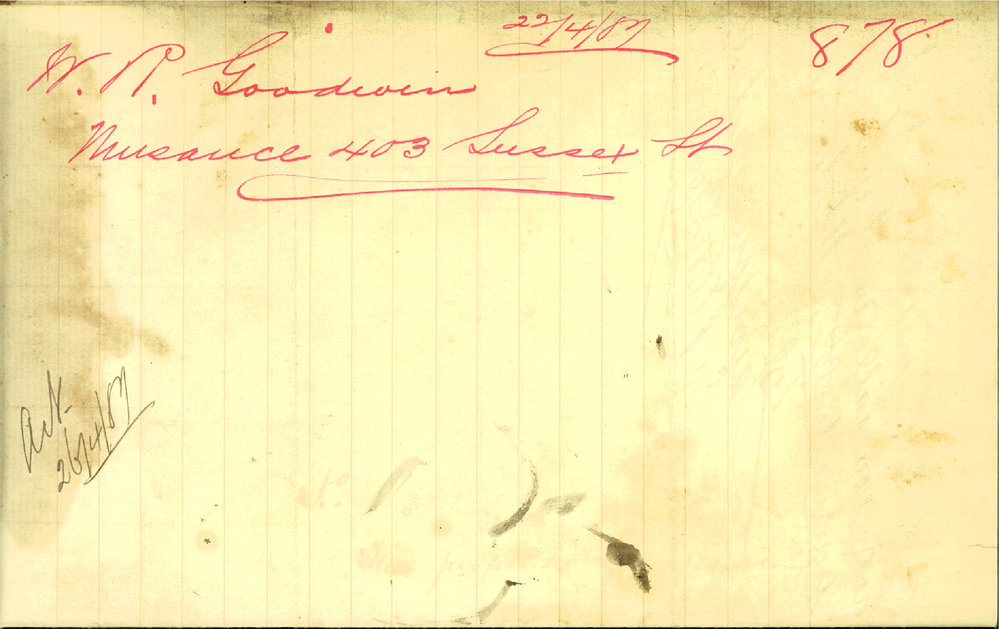 22/4/87
878
W. R. Goodwin
Nuisance 403 Sussex St
26/4/87